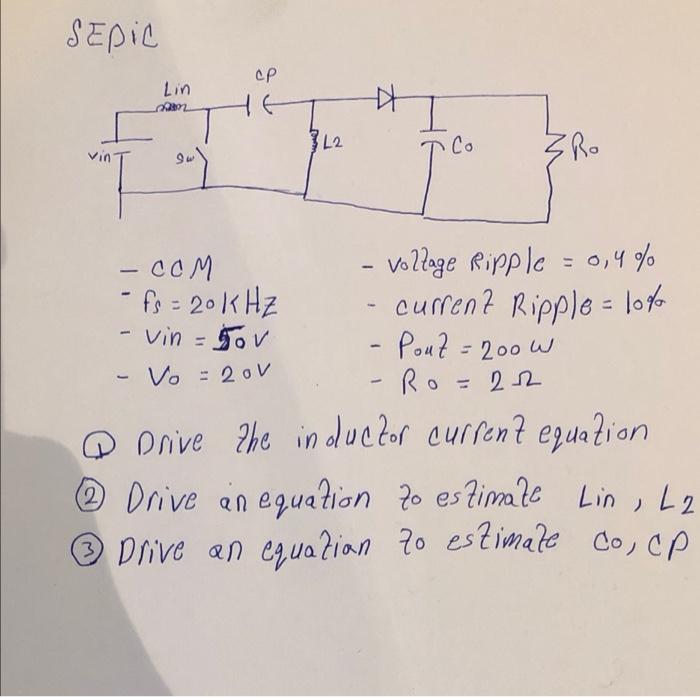 SEPIC
Lin
CP
Vin
Sw
L2
Co
Ro
- CCM
- fs = 20KHz
- Vin = 50V
- Vo = 20V
- Voltage Ripple = 0,4%
- current Ripple = 10%
- Pout = 200 W
- Ro = 2 Ω
① Drive the inductor current equation
② Drive an equation to estimate Lin, L2
③ Drive an equation to estimate Co, CP